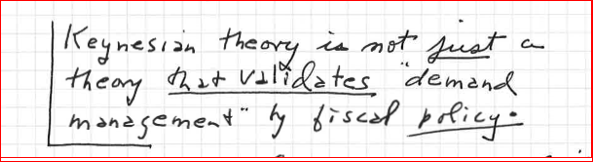 Keynesian theory is not just a
theory that validates "demand
management" by fiscal policy.